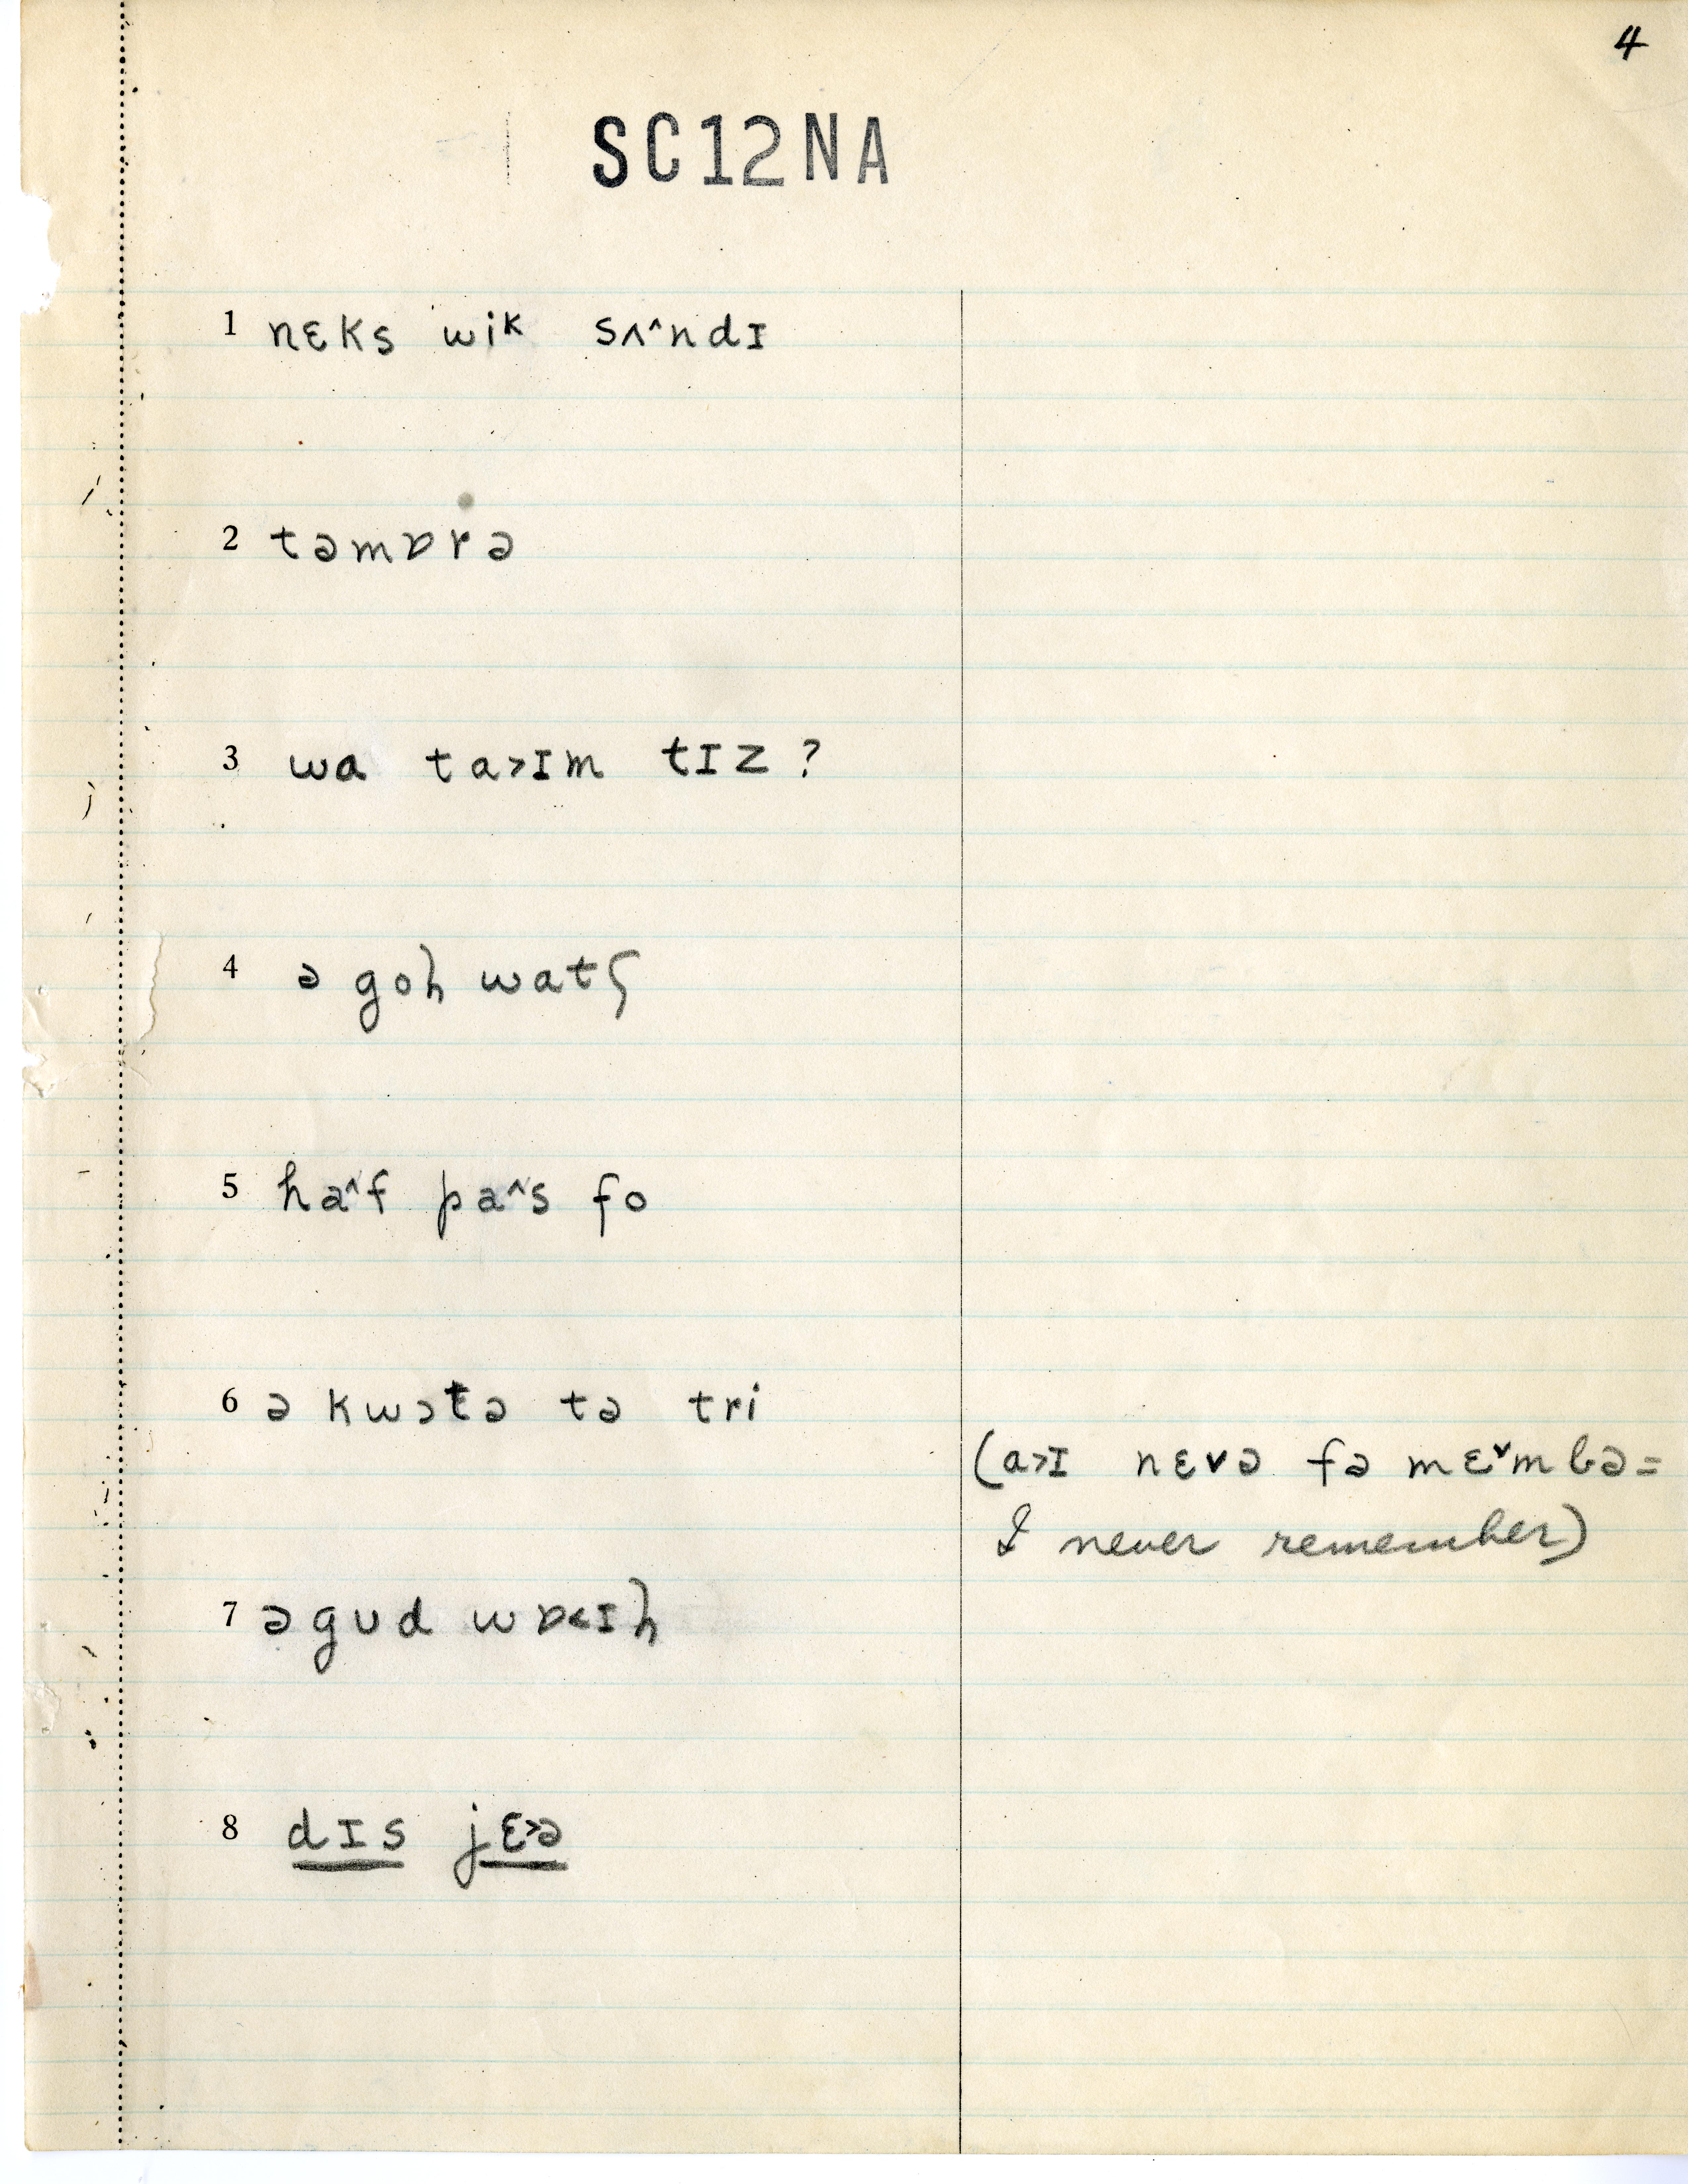 4
SC12NA
1 nɛks wiᵏ sʌ^ndɪ
2 təmɒrə
3 wa ta>ɪm tɪz ?
4 ə goɦ watʃ
5 ha^f pa^s fo
6 ə kwɔtə tə tri
(a>ɪ nɛvə fə mɛˇmbə =
I never remember)
7 ə gʊd wɒ<ɪɦ
8 dɪs jɛ>ə